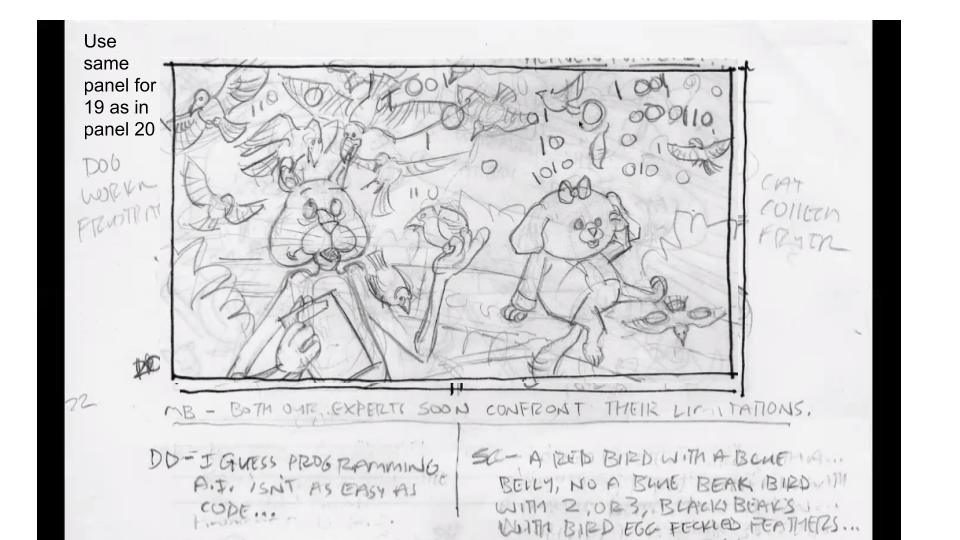 Use
same
panel for
19 as in
panel 20
DOG
WORKN
110
001
1
01
10
1010
1 001
000110
1
010
"U
CAT
DR
22
MB - BOTH OUR EXPERTS SOON CONFRONT THEIR LIMITATIONS.
DD - I GUESS PROGRAMMING
A.I. ISN'T AS EASY AS
CODE...
SC - A RED BIRD WITH A BLUE
BELLY, NO A BLUE BEAK BIRD
WITH 2, OR 3, BLACK BEAKS
WITH BIRD EGG FECKLED FEATHERS...